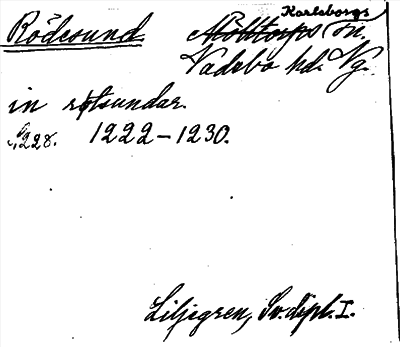 Rödesund Karlsborgs
Molltorps sn.
Vadsbo hd. Vg.
in røtsundar.
s. 228. 1222–1230.
Liljegren, Sv. dipl. I.